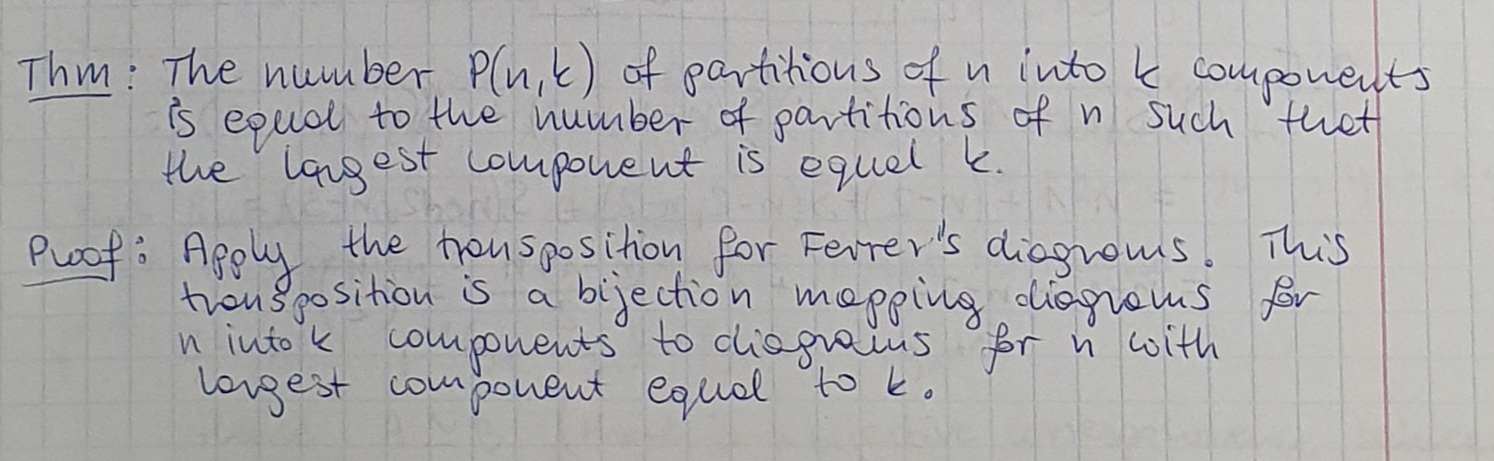 Thm: The number P(n,k) of partitions of n into k components
is equal to the number of partitions of n such that
the largest component is equal k.
Proof: Apply the transposition for Ferrer's diagrams. This
transposition is a bijection mapping diagrams for
n into k components to diagrams for n with
largest component equal to k.